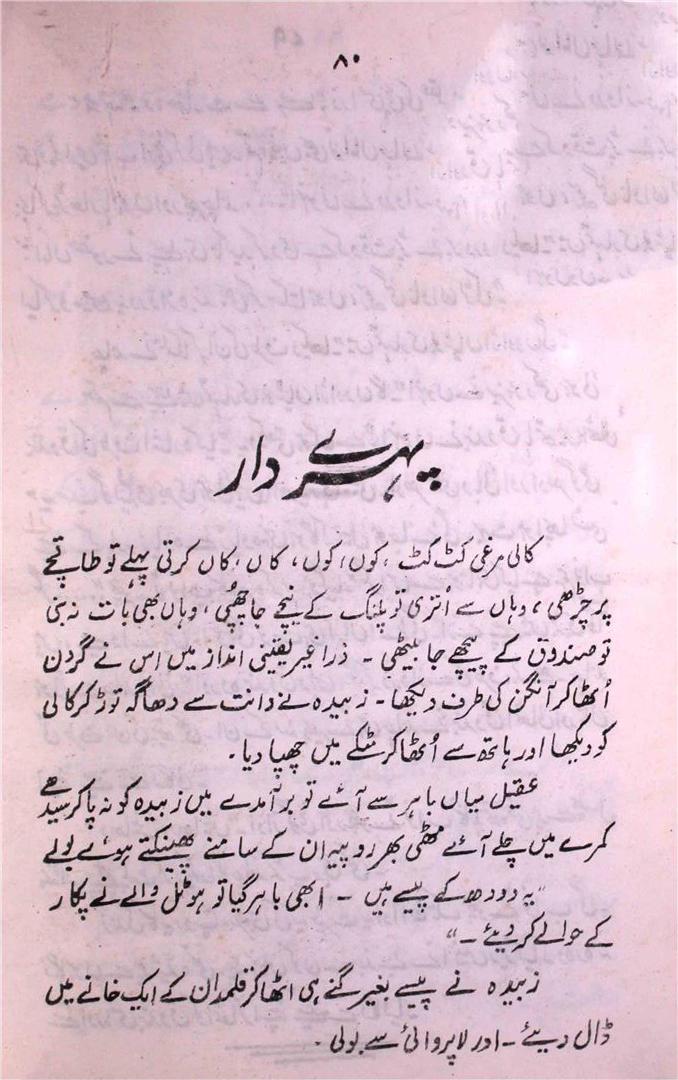 ۸۰
پہرے دار
کالی مرغی کٹ کٹ ، کوں ، کوں ، کاں ، کاں کرتی پہلے تو طاقچے
پر چڑھی ، وہاں سے اُتری تو پلنگ کے نیچے جا چھپی ، وہاں بھی بات نہ بنی
تو صندوق کے پیچھے جا بیٹھی ۔ ذرا غیر یقینی انداز میں اس نے گردن
اُٹھا کر آنگن کی طرف دیکھا ۔ زبیدہ نے دانت سے دھاگہ توڑ کر کالی
کو دیکھا اور ہاتھ سے اُٹھا کر مٹکے میں چھپا دیا ۔
عقیل میاں باہر سے آئے تو برآمدے میں زبیدہ کو نہ پا کر سیدھے
کمرے میں چلے آئے مٹھی بھر روپیہ ان کے سامنے پھینکتے ہوئے بولے
"یہ دودھ کے پیسے ہیں ۔ ابھی باہر گیا تو ہوٹل والے نے پکار
کے حوالے کر دیئے ۔"
زبیدہ نے پیسے بغیر گنے ہی اٹھا کر قلمدان کے ایک خانے میں
ڈال دیئے ۔ اور لاپروائی سے بولی ۔